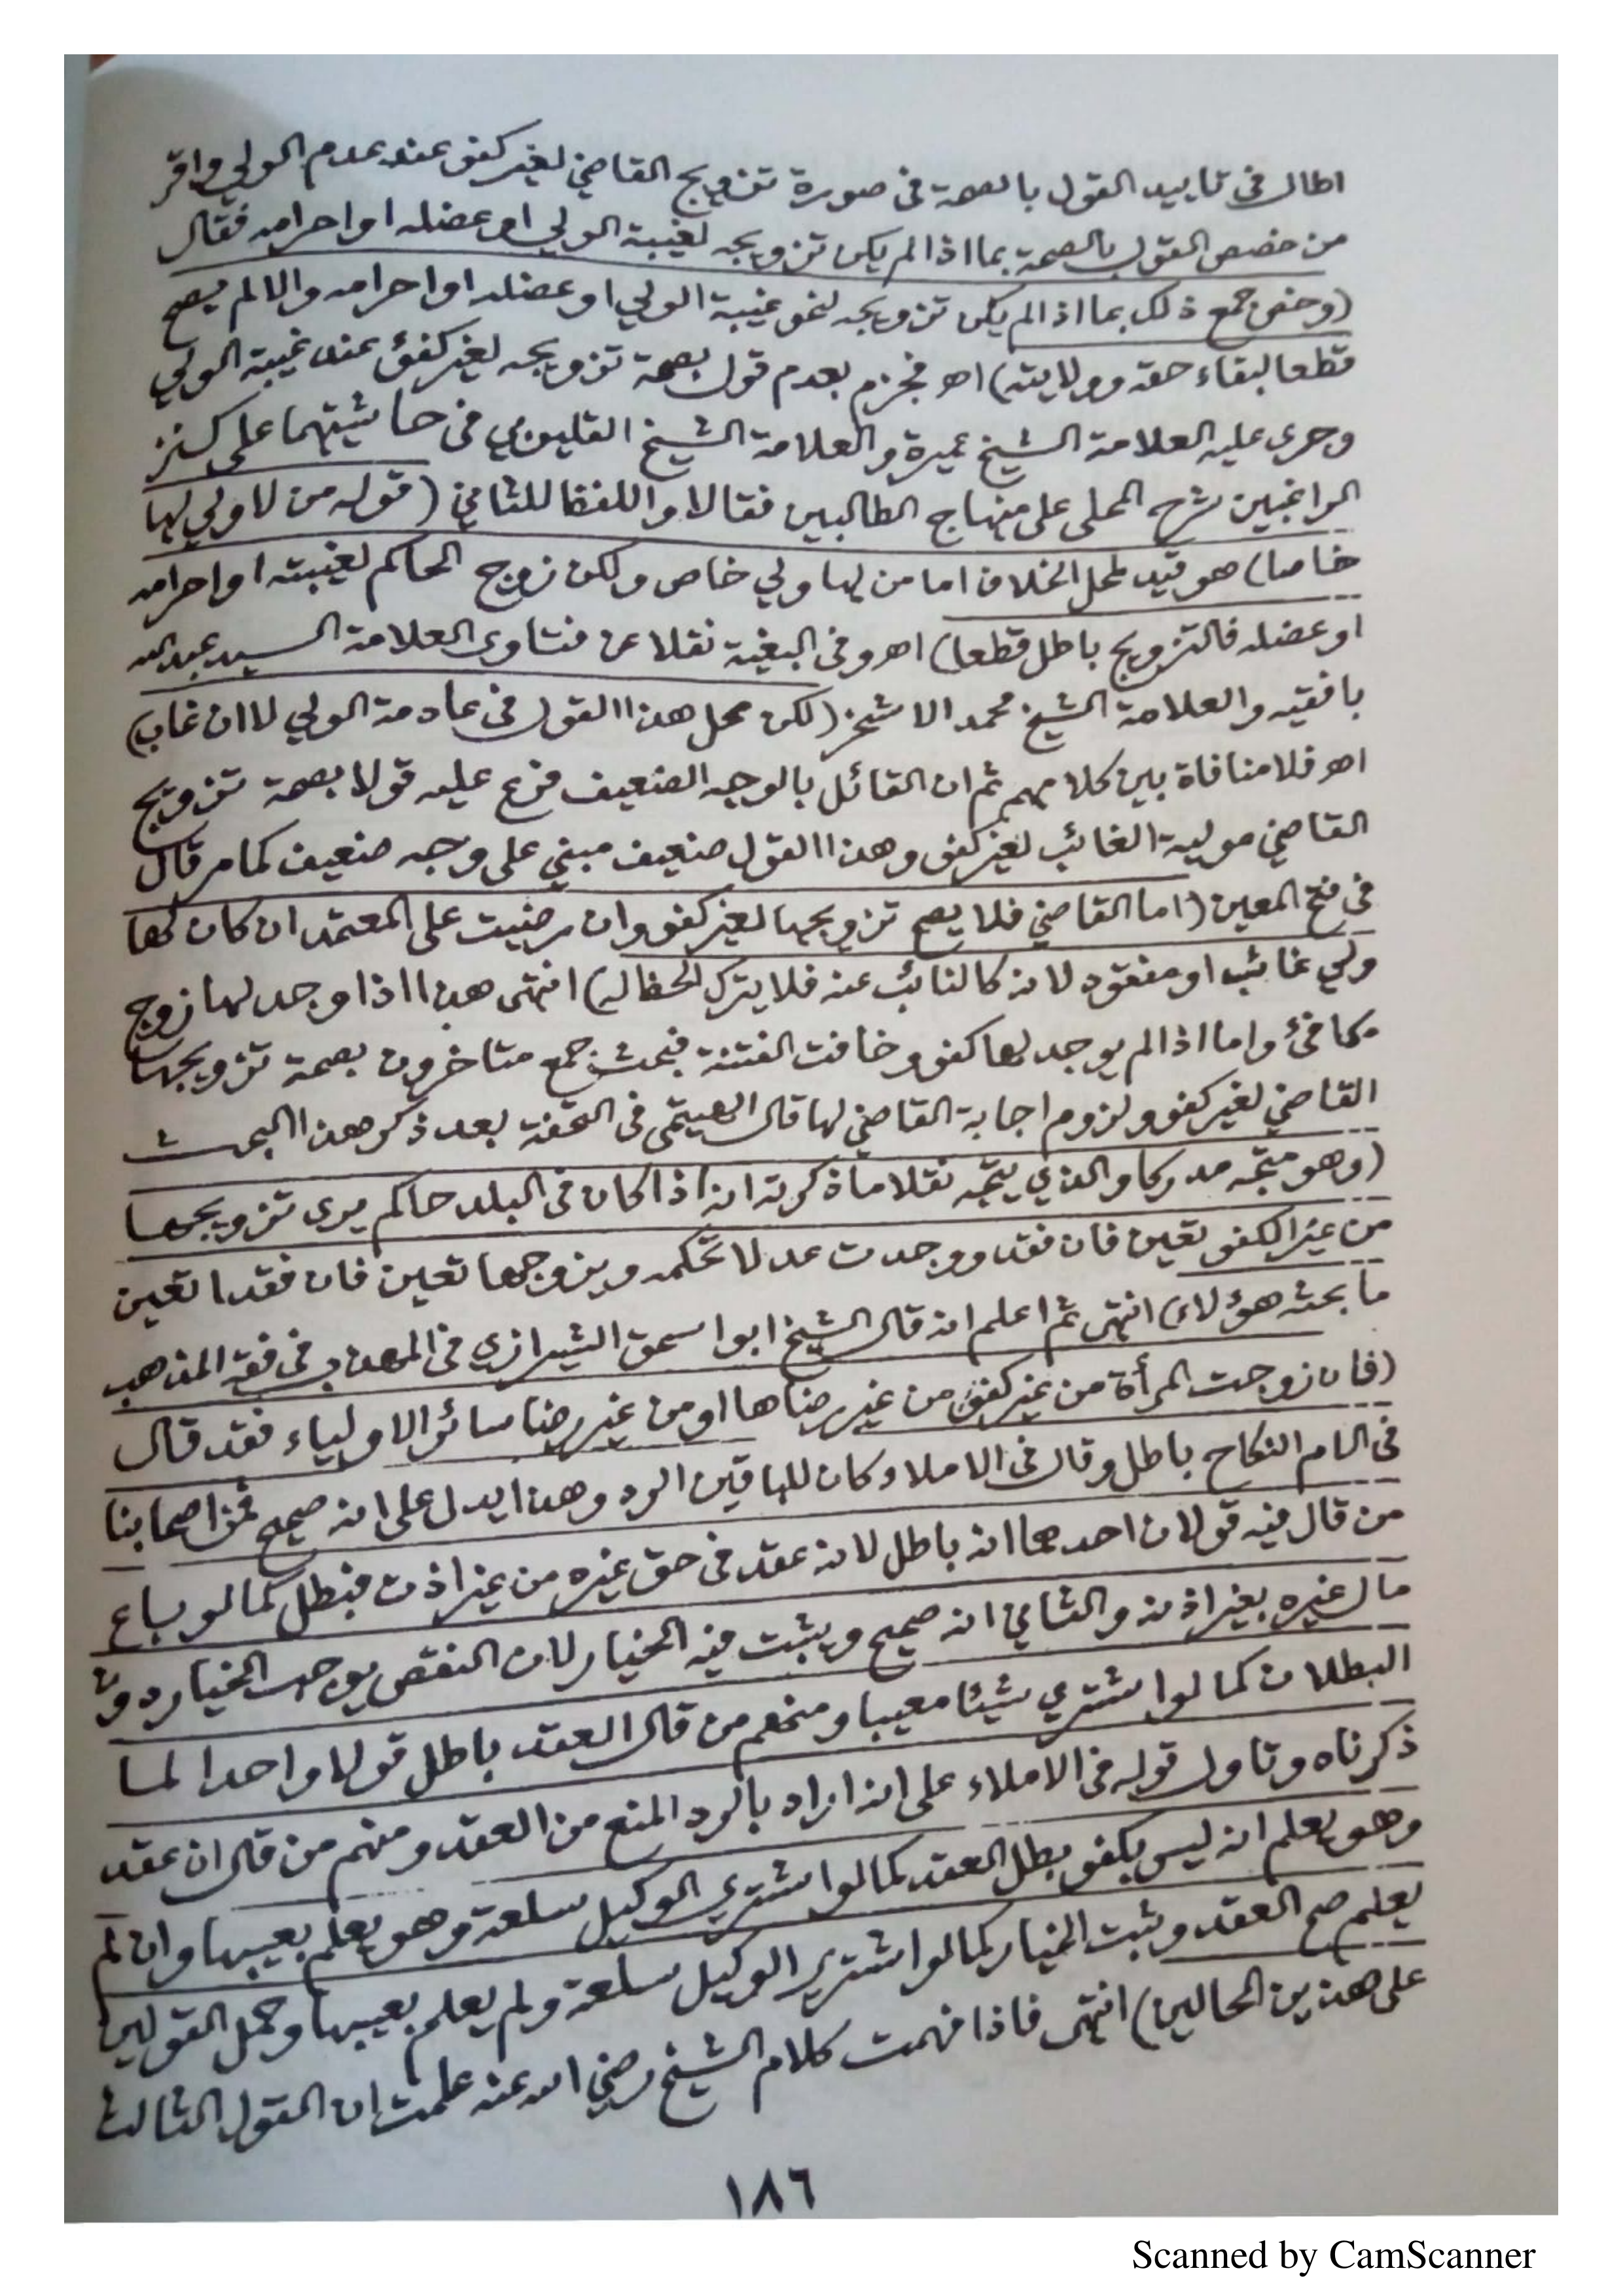 اطال في تاييد القول بالصحة في صورة تزويج القاضي لغير كفو عند عدم الولي واقر
من خصص القول بالصحة بما اذا لم يكن تزويجه لغيبة الولي او عضله او احرامه فقال
(وخص جمع ذلك بما اذا لم يكن تزويجه لنحو غيبة الولي او عضله او احرامه والا لم يصح
قطعا لبقاء حقه وولايته) اهـ فجزم بعدم قول بصحة تزويجه لغير كفؤ عند غيبة الولي
وجرى عليه العلامة الشيخ عميرة والعلامة الشيخ القليوبي في حاشيتهما على كنز
الراغبين شرح المحلي على منهاج الطالبين فقالا واللفظ للثاني (قوله من لا ولي لها
خاصا) هو قيد لمحل الخلاف اما من لها ولي خاص ولكن زوج الحاكم لغيبته او احرامه
او عضله فالتزويج باطل قطعا) اهـ وفي البغية نقلا عن فتاوى العلامة السيد عبد الله
بافقيه والعلامة الشيخ محمد الاشخر (لكن محل هذا القول في عادمة الولي لا ان غاب)
اهـ فلا منافاة بين كلامهم ثم ان القائل بالوجه الضعيف فرع عليه قولا بصحة تزويج
القاضي مولية الغائب لغير كفو وهذا القول ضعيف مبني على وجه ضعيف كما مر قال
في فتح المعين (اما القاضي فلا يصح تزويجها لغير كفو وان رضيت على المعتمد ان كان لها
ولي غائب او مفقود لانه كالنائب عنه فلا يترك الحظ له) انتهى هذا اذا وجد لها زوج
مكافئ واما اذا لم يوجد لها كفو وخافت الفتنة فبحث جمع متاخرون بصحة تزويجها
القاضي لغير كفو ولزوم اجابة القاضي لها قال الهيتمي في التحفة بعد ذكر هذا البحث
(وهو متجه مدركا والذي يتجه نقلا ما ذكرته انه اذا كان في البلد حاكم يرى تزويجها
من غير الكفو تعين فان فقد ووجدت عدلا تحكمه ويزوجها تعين فان فقدا تعين
ما بحثه هؤلاء) انتهى ثم اعلم انه قال الشيخ ابو اسحق الشيرازي في المهذب في فقه المذهب
(فان زوجت المرأة من غير كفؤ من غير رضاها او من غير رضا سائر الاولياء فقد قال
في الام النكاح باطل وقال في الاملاء كان للباقين الرد وهذا يدل على انه صحيح فمن اصحابنا
من قال فيه قولان احدهما انه باطل لانه عقد في حق غيره من غير اذن فبطل كما لو باع
مال غيره بغير اذنه والثاني انه صحيح ويثبت فيه الخيار لان النقص يوجب الخيار دون
البطلان كما لو اشترى شيئا معيبا ومنهم من قال العقد باطل قولا واحدا لما
ذكرناه وتاول قوله في الاملاء على انه اراد بالرد المنع من العقد ومنهم من قال ان عقد
وهو يعلم انه ليس بكفو بطل العقد كما لو اشترى الوكيل سلعة وهو يعلم بعيبها وان لم
يعلم صح العقد وثبت الخيار كما لو اشترى الوكيل سلعة ولم يعلم بعيبها وحمل القولين
على هذين الحالين) انتهى فاذا فهمت كلام الشيخ رضي الله عنه علمت ان القول الثالث
١٨٦
Scanned by CamScanner